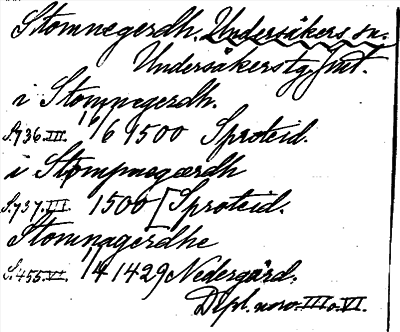 Stomnegerdh. Undersåkers sn.
Undersåkers tg. Jmt.
i Stompnegerdh.
S.736.III. 16/6 1500 Sproteid.
i Stompnægærdh
S.737.III 1500 [Sproteid.
Stomnagerdhe
S.455.VI. 1/4 1429 Nedergård.
Dipl. norv. III o. VI.